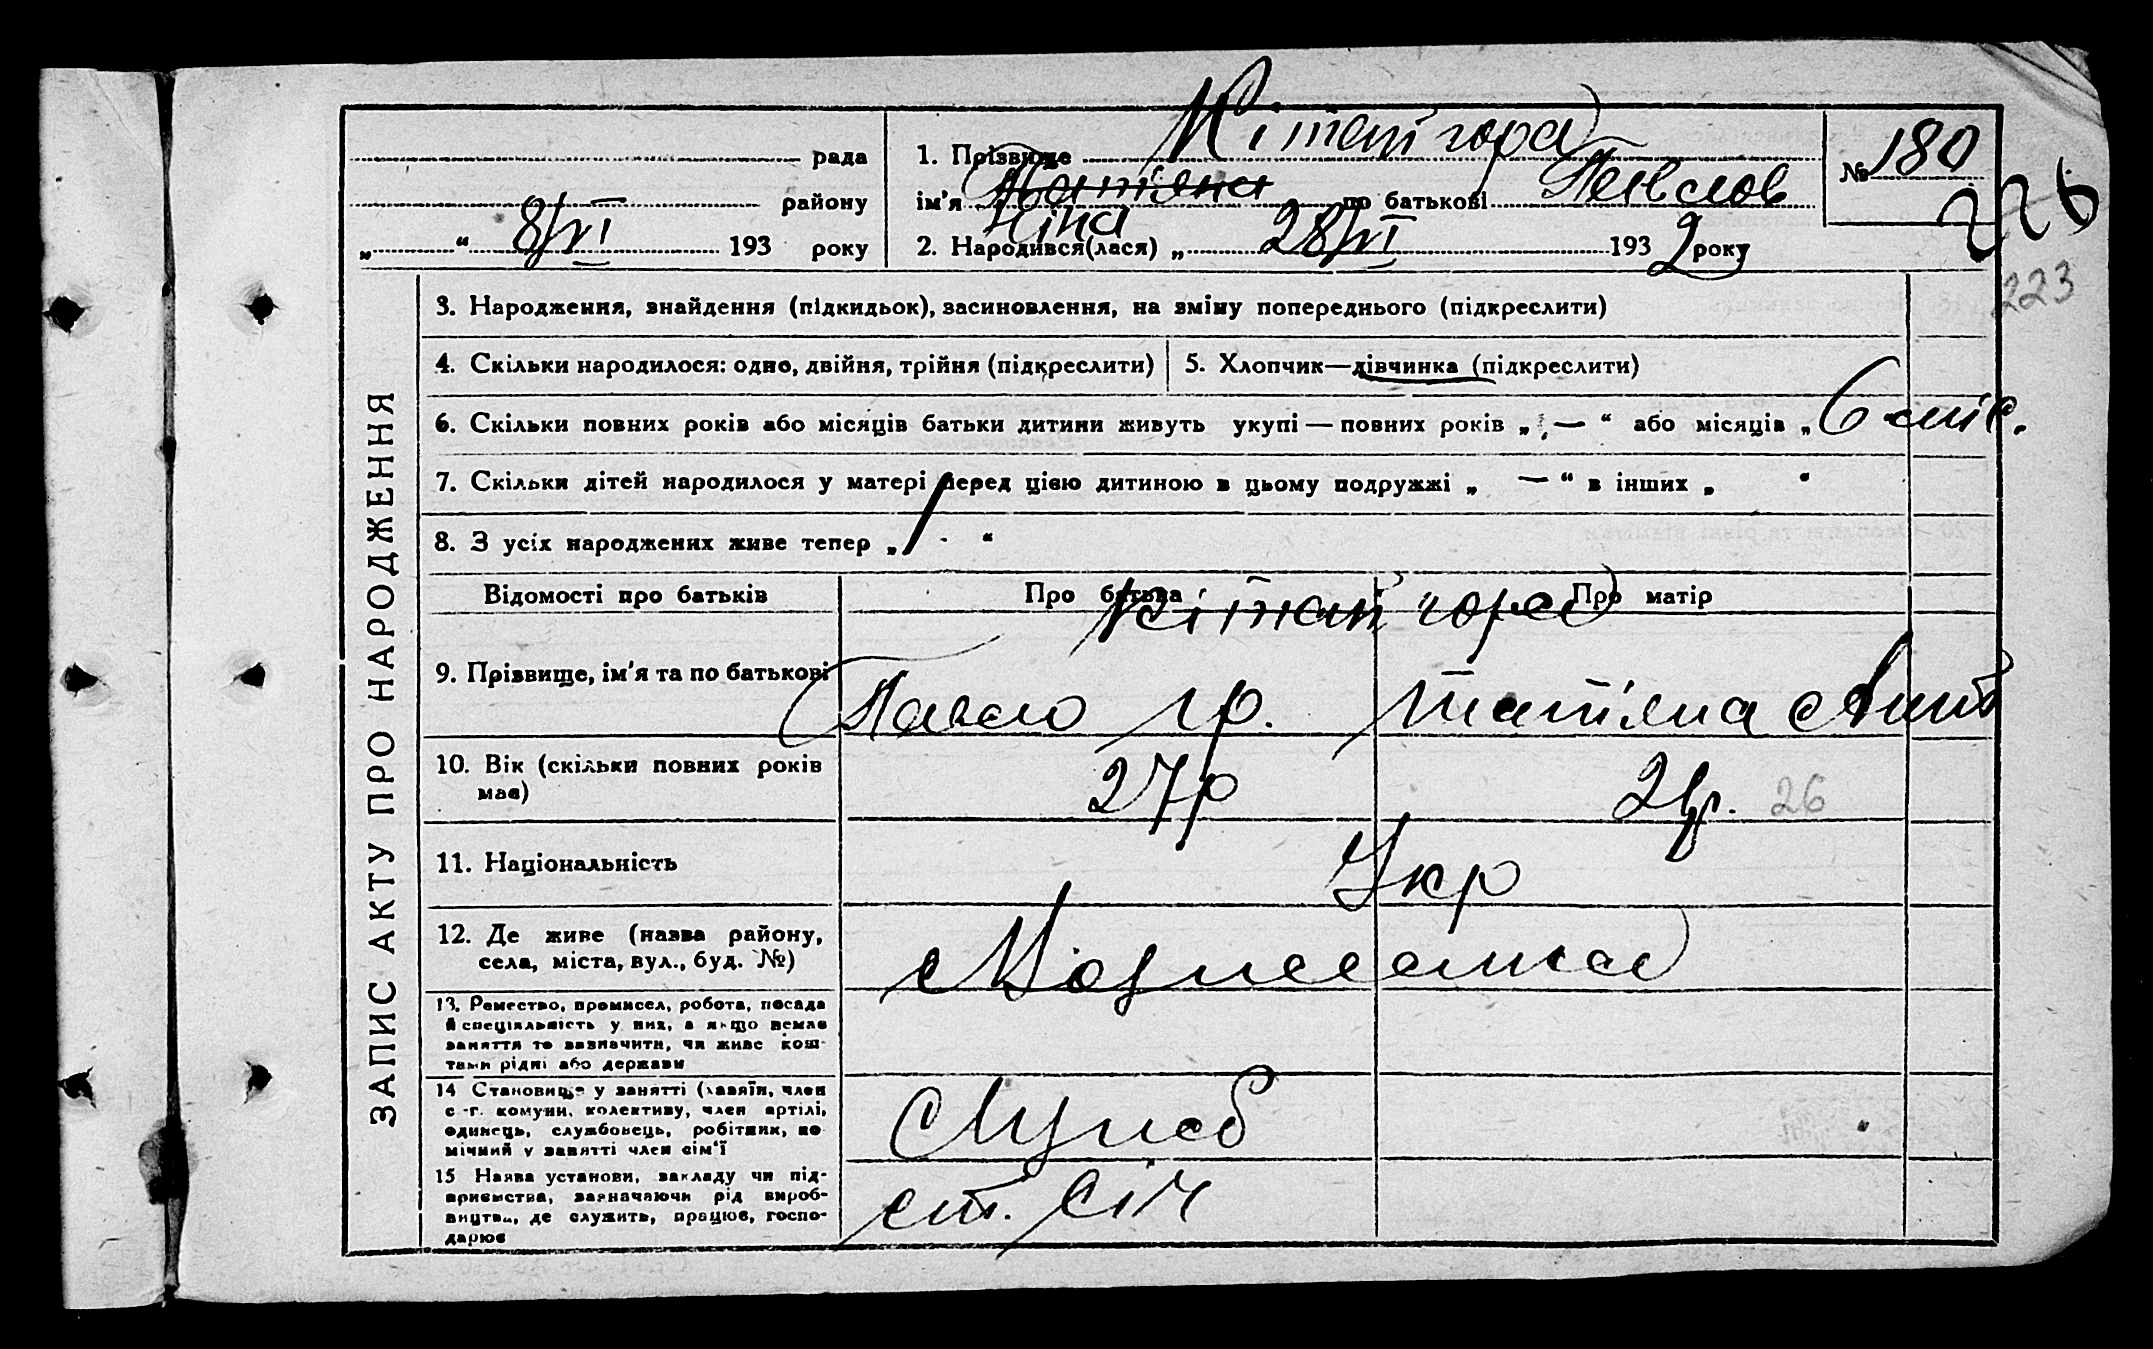 рада
району
„ “ 8/VI 193 року
1. Прізвище Китайгора
ім'я Татіяна Ніна по батькові Павлов
2. Народився(лася) „ 28/VI 1932 року
№ 180
226
223
ЗАПИС АКТУ ПРО НАРОДЖЕННЯ
3. Народження, знайдення (підкидьок), засиновлення, на зміну попереднього (підкреслити)
4. Скільки народилося: одно, двійня, трійня (підкреслити)
5. Хлопчик—дівчинка (підкреслити)
6. Скільки повних років або місяців батьки дитини живуть укупі — повних років „ — “ або місяців „ 6 міс.
7. Скільки дітей народилося у матері перед цією дитиною в цьому подружжі „ — “ в інших „ “
8. З усіх народжених живе тепер „ 1 “
Відомості про батьків
Про батька
Про матір
Китайгора
9. Прізвище, ім'я та по батькові
Павло Гр.
Татіяна
10. Вік (скільки повних років має)
27р
26
11. Національність
Укр
12. Де живе (назва району,
села, міста, вул., буд. №)
Вознесенка
13. Ремество, промисел, робота, посада
й спеціяльність у них, а якщо немає
заняття то зазначити, чи живе кош-
тами рідні або держави
14 Становище у занятті (хазяїн, член
с.-г. комуни, колективу, член артілі,
одинець, службовець, робітник, по-
мічний у занятті член сім'ї
Служб
15 Назва установи, закладу чи під-
приємства, зазначаючи рід вироб-
ництва, де служить, працює, госпо-
дарює
ст. Січ